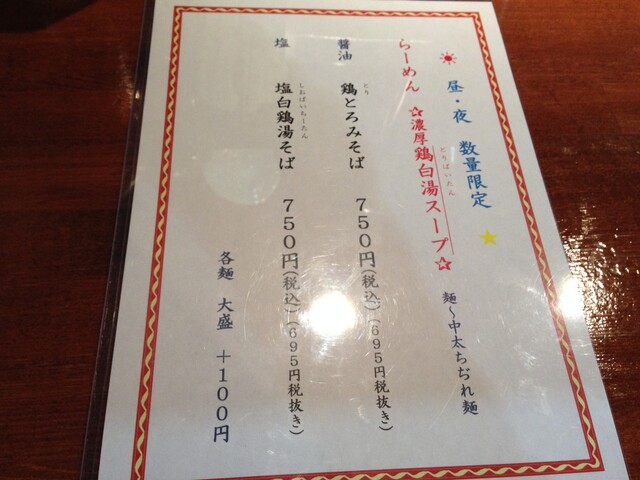 昼・夜 数量限定
らーめん ☆濃厚鶏白湯スープ☆
とりぱいたん
麺～中太ちぢれ麺
醤油 鶏とろみそば 750円(税込)(695円税抜き)
とり
塩 塩白鶏湯そば 750円(税込)(695円税抜き)
しおぱいちーたん
各麺 大盛 +100円